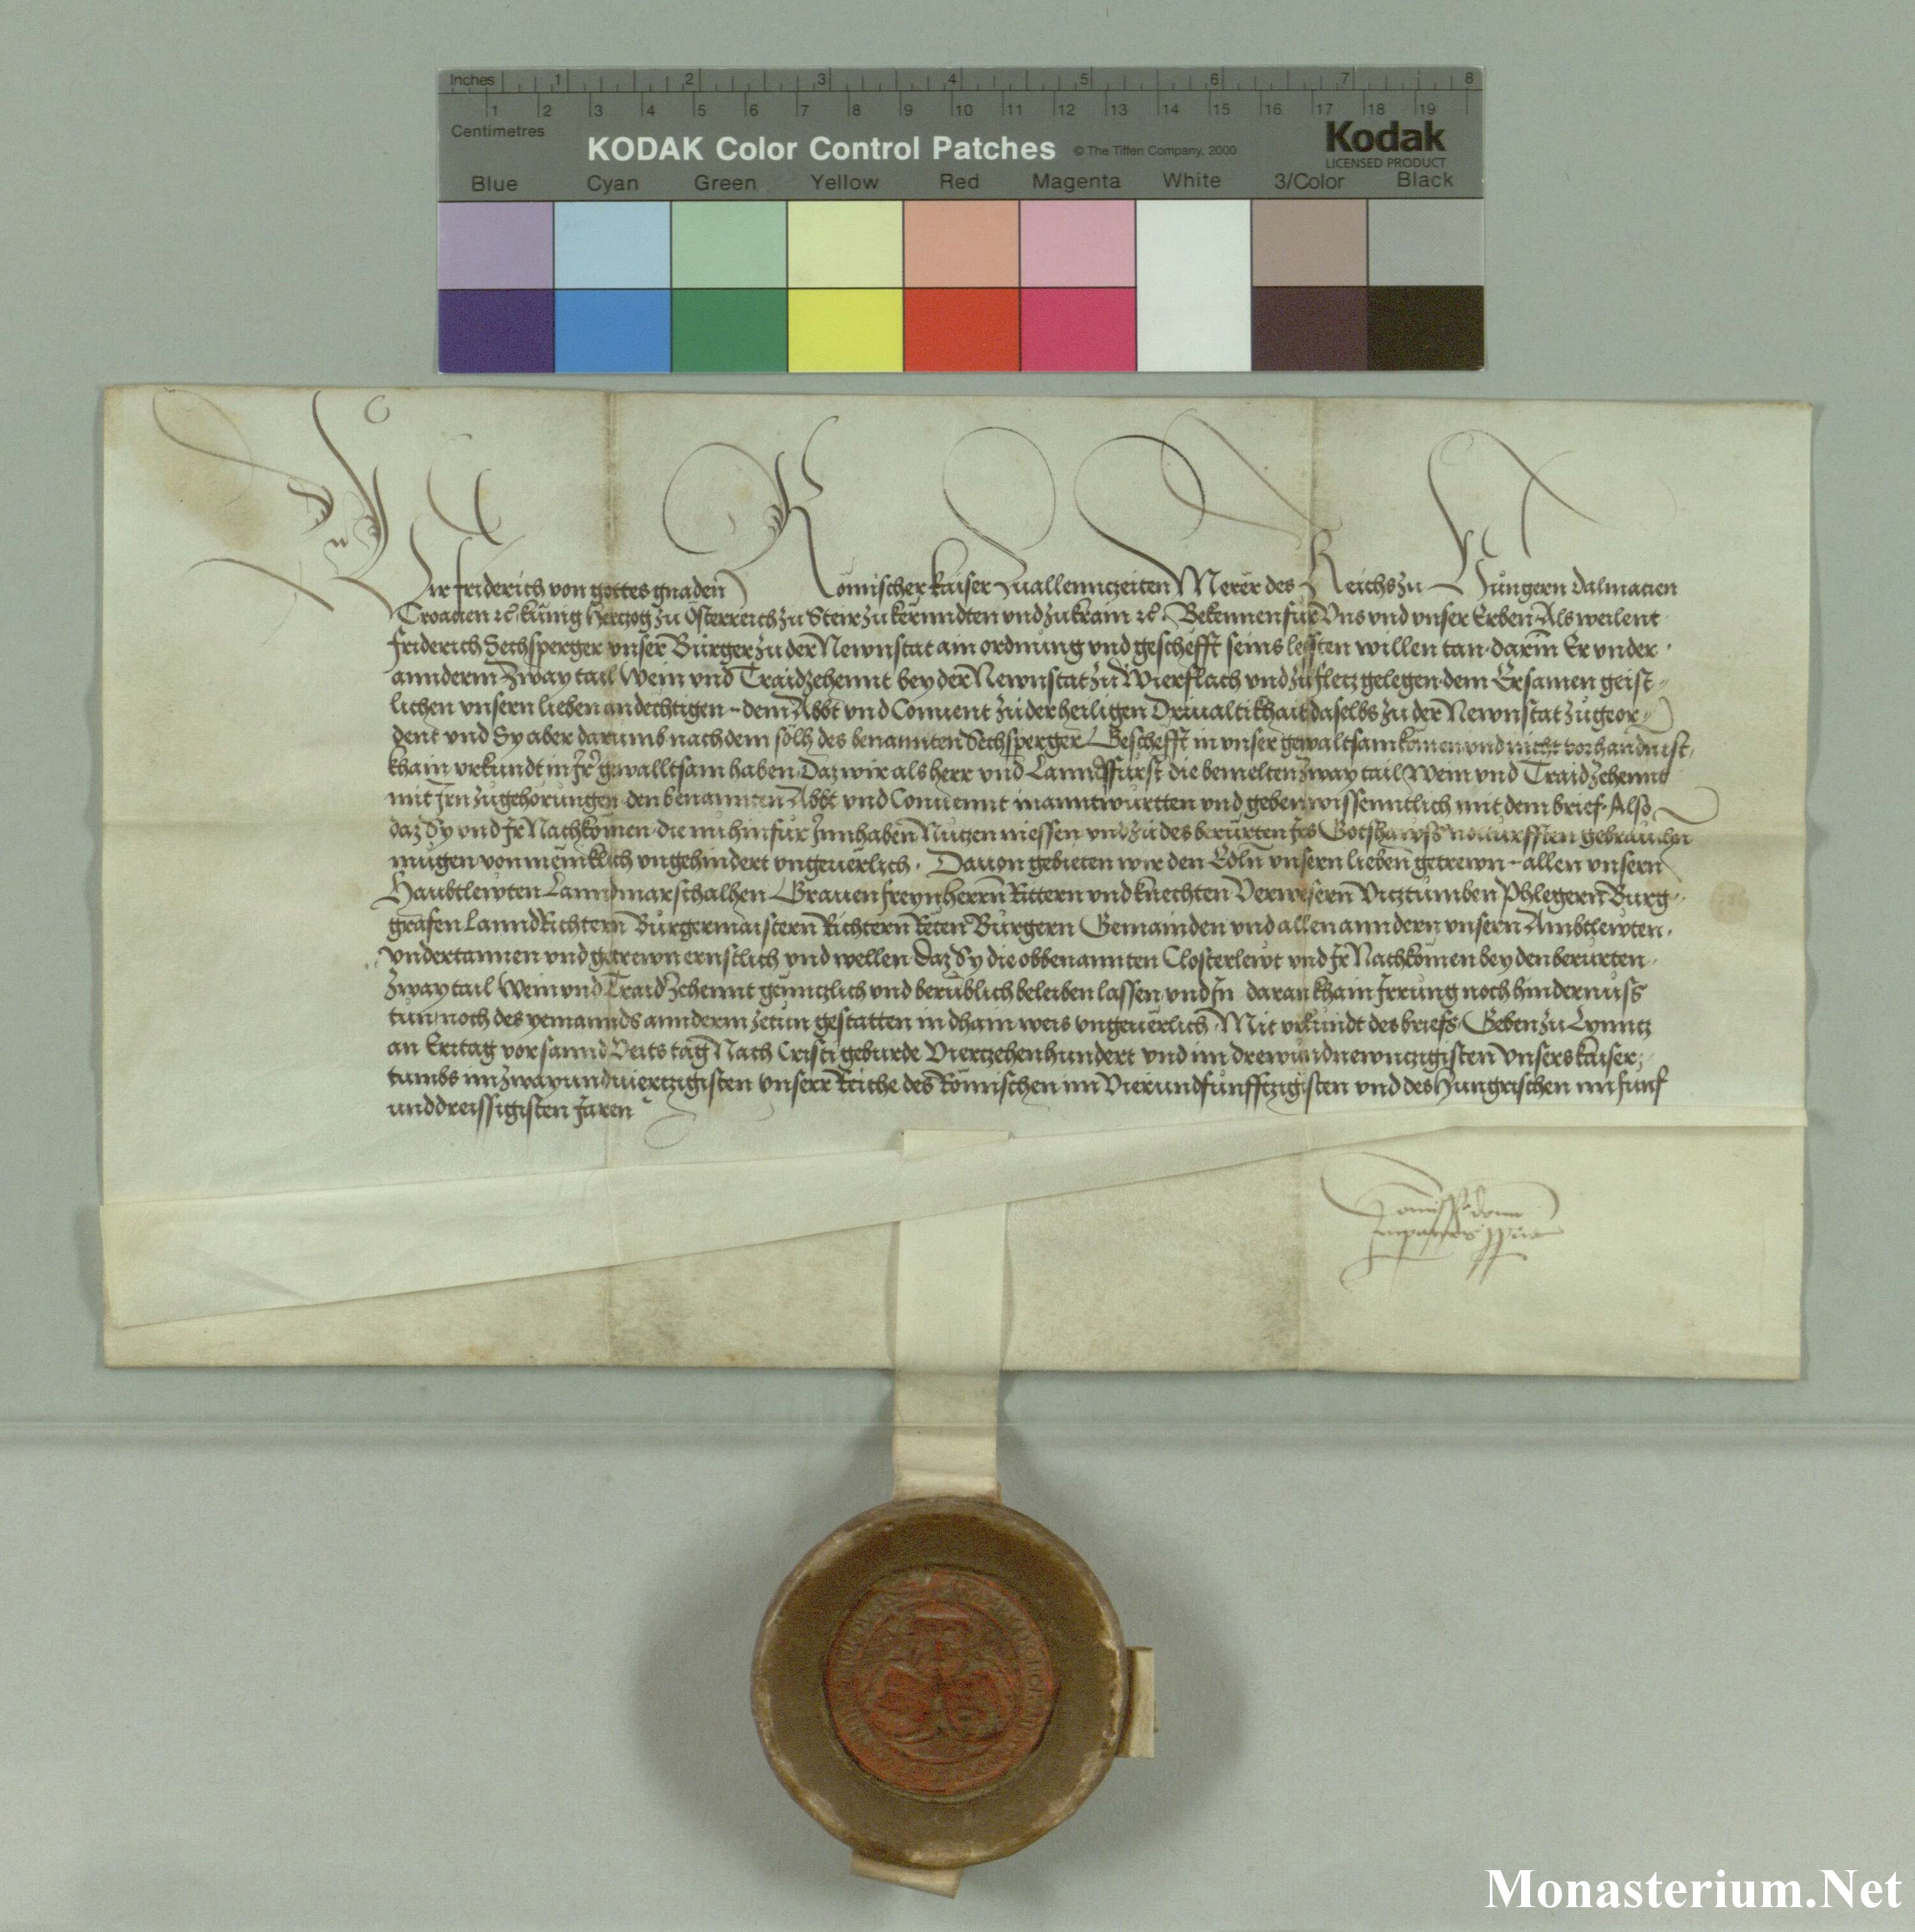 Inches 1 2 3 4 5 6 7 8
1 2 3 4 5 6 7 8 9 10 11 12 13 14 15 16 17 18 19
Centimetres
KODAK Color Control Patches © The Tiffen Company, 2000 Kodak
LICENSED PRODUCT
Blue Cyan Green Yellow Red Magenta White 3/Color Black
Wir Friderich von gottes gnaden Römischer kaiser zuallenntzeiten Merer des Reichs zu Hungern Dalmacien
Croacien etc kunig Hertzog zu Osterreich zu Steir zu kernndten und zu krain etc. Bekennen fur Uns und unser Erben Als weilent
Friderich Sechsperger unser Burger zu der Newnstat ain ordnung und geschefft seins lessten willen tan darin Er under
annderm zway tail Wein und Traidzehennt bey der Newnstat zu Wierflach und zu fletz gelegen dem Ersamen geist-
lichen unsern lieben andechtigen dem Abbt und Convent zu der heiligen Drivaltikhait daselbs zu der Newnstat zugeor-
dent und Sy aber darumb nach dem solh des benannten Sechsperger Geschefft in unser gewaltsam komen und nicht vorhanden ist,
khain urkundt in Irer gewalltsam haben. Daz wir als herr und Lanndsfürst die bemelten zway tail Wein und Traidzehennt
mit Irn zugehorungen den benannten Abbt und Convennt inanntwurtten und geben wissenntlich mit dem brief. Also
daz Sy und Ir Nachkomen die nu hinfur Innhaben Nutzen niessen und zu des berurten Irs Gotshawss notturfften gebrauchen
mugen von meniklich ungehindert ungeverlich. Davon gebieten wir den Edeln unsern lieben getrewn allen unsern
Haubtlewten Lanndmarschalhen Graven freyn herrn Rittern und knechten Verwesern Vitztumben Phlegern Burg-
grafen LanndRichtern Burgermaistern Richtern Reten Burgern Gemainden und allen anndern unsern Ambtlewten,
undertannen und getrewn ernstlich und wellen daz Sy die obbenannten Closterlewt und Ir Nachkomen bey den berurten
zway tail Wein und Traidzehennt genntzlich und berublich beleiben lassen und In daran khain Irrung noch hindernuss
tun noch des yemannds annderm zetun gestatten in dhain weis ungeverlich. Mit urkundt des briefs. Geben zu Lynntz
an Eritag vor sannd Veits tag Nach Cristi geburde Viertzehenhundert und im drewundnewntzigisten Unsers kaiser-
tumbs im zwayundviertzigisten Unserr Reiche des Römischen im Vierundfünfftzigisten und des Hungrischen im fünf
unddreissigisten Jaren
Comissio domini
imperatoris propria
Monasterium.Net